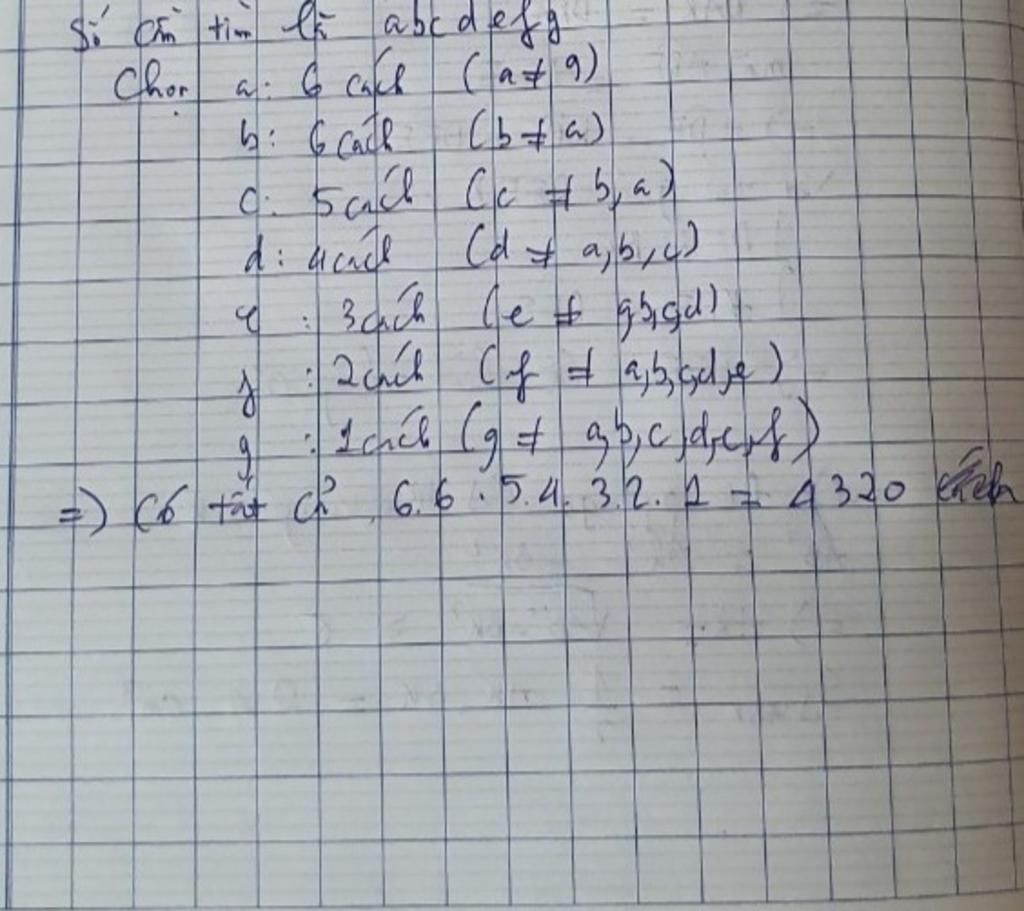 Số cần tìm là abcdefg
Chọn a: 6 cách (a ≠ 9)
b: 6 cách (b ≠ a)
c: 5 cách (c ≠ b, a)
d: 4 cách (d ≠ a, b, c)
e: 3 cách (e ≠ a, b, c, d)
f: 2 cách (f ≠ a, b, c, d, e)
g: 1 cách (g ≠ a, b, c, d, e, f)
=) Có tất cả 6.6.5.4.3.2.1 = 4320